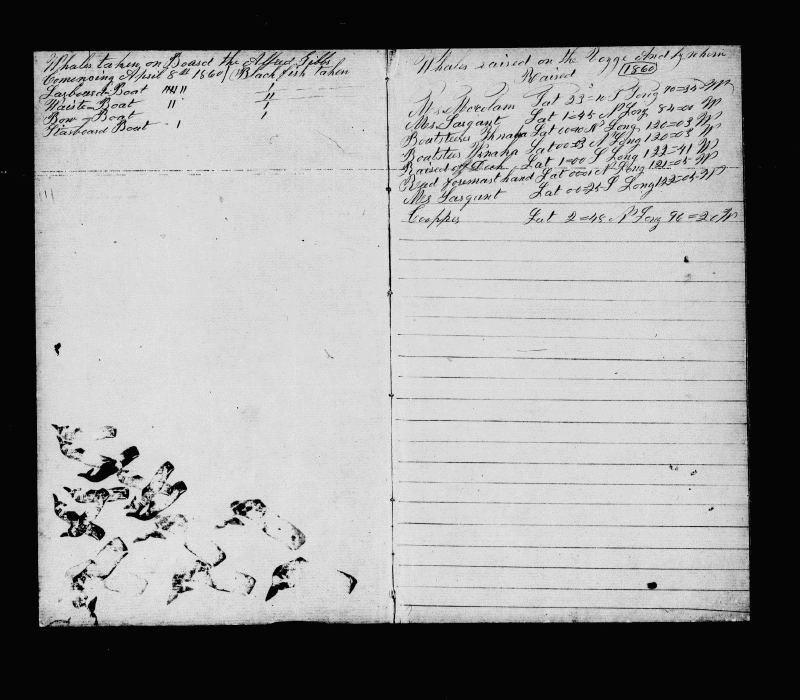 Whales taken on Board the Alfred Gibbs
Comencing April 8th 1860 / Black fish taken
Larboard Boat
Waiste Boat 11 11
Bow Boat 1
Starboard Boat 1
Whales raised on the Voyge And by whom
Raised 1860
Mr Lat 33=10 S Long
Mr Sargant Lat 1=45 N Long 84=00 W
Boatsteer Kanaka Lat N Long 120=03 W
Boatsteer Kanaka Lat 00=13 N Long 120=03 W
Raised of Deck Lat 1=00 S Long 122=41 W
Read foremast hand Lat N Long 121=05 W
Mr Sargant Lat 00=25 S Long 122=05 W
Cooper Lat 2=48 N Long 90=20 W